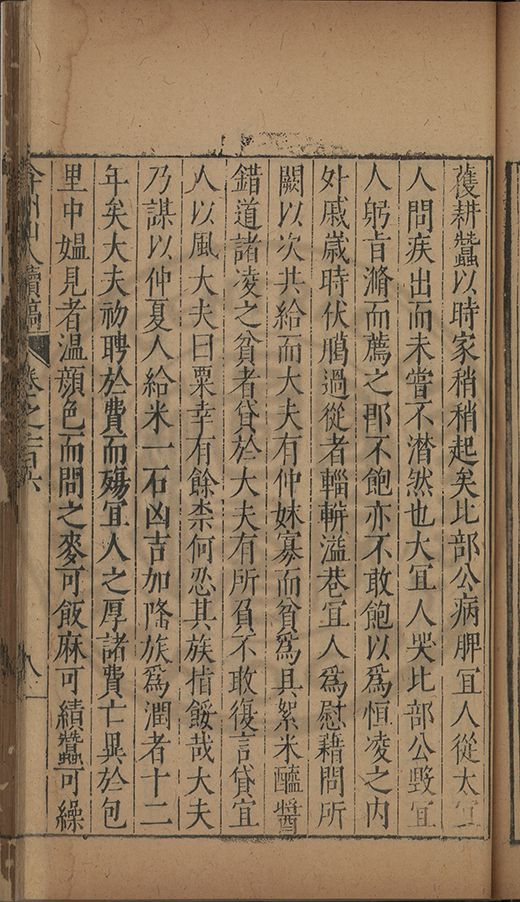 蔓耕蠶以時家稍稍起矣比部公病脾宜人從太宜
人問疾出而未嘗不潸然也大宜人哭比部公毀宜
人躬旨滫而薦之即不飽亦不敢飽以爲恒凌之内
外戚歲時伏臈過從者輜軿溢巷宜人爲慰藉問所
闕以次共給而大夫有仲妹寡而貧爲具絮米醯醬
錯道諸凌之貧者貸於大夫有所負不敢復言貸宜
人以風大夫曰粟幸有餘柰何忍其族㨖餒哉大夫
乃謀以仲夏人給米一石凶吉加隆族爲潤者十二
年矣大夫初聘於費而殤宜人之厚諸費亡異於包
里中媼見者温顔色而問之麥可飯麻可績蠶可繰
弇州山人續稿 卷之一百六 八